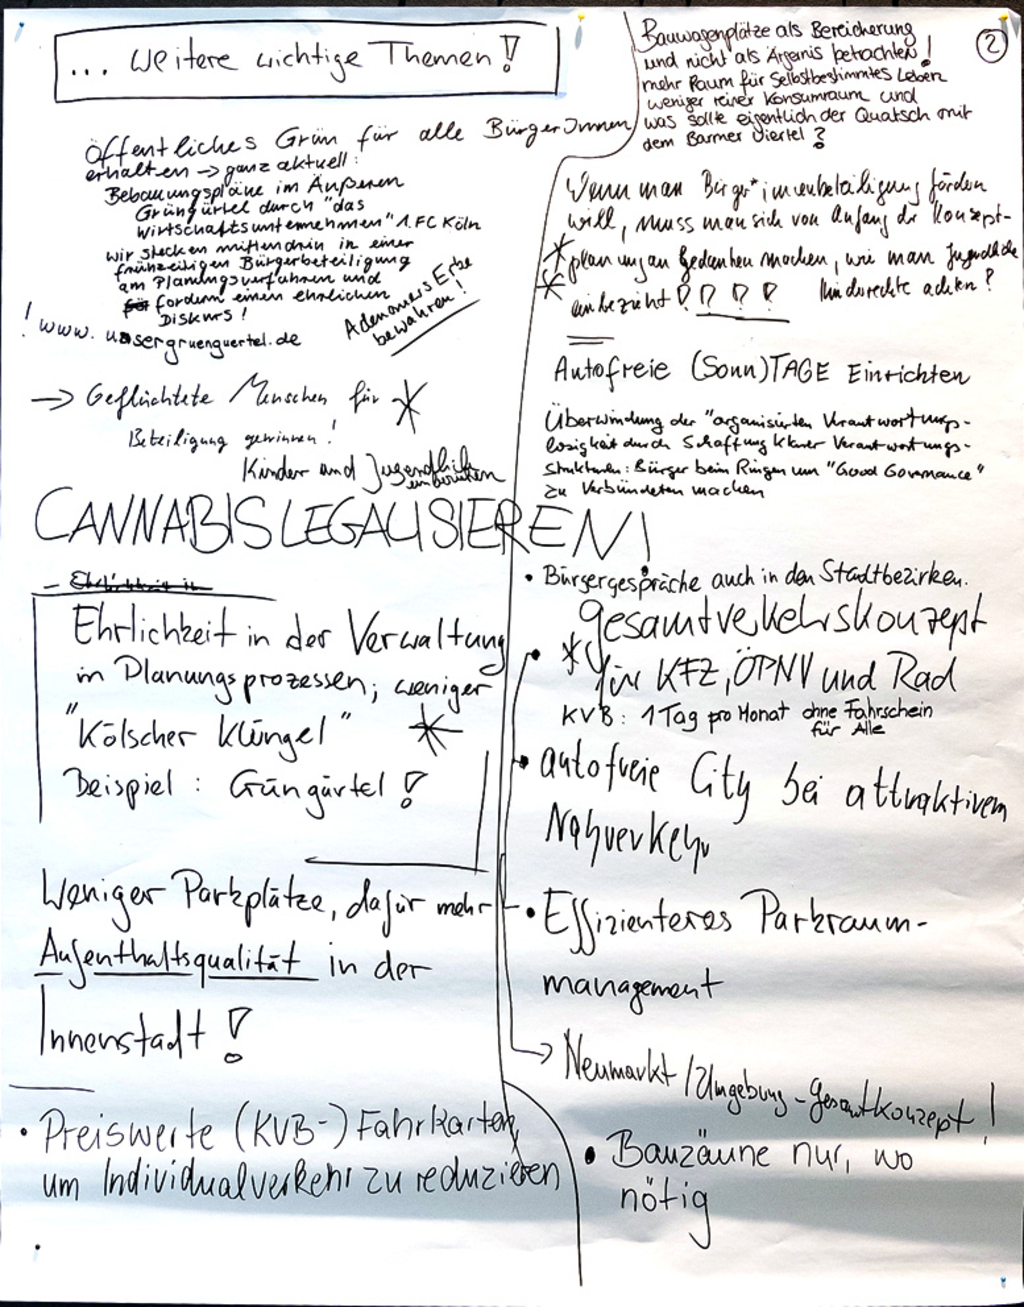 ... weitere wichtige Themen!
öffentliches Grün für alle BürgerInnen
erhalten → ganz aktuell:
Bebauungspläne im Äußeren
Grüngürtel durch "das
Wirtschaftsunternehmen" 1. FC Köln
wir stecken mittendrin in einer
frühzeitigen Bürgerbeteiligung
am Planungsverfahren und
fordern einen ehrlichen
Diskurs!
! www.unsergruenguertel.de
Adenauers Erbe
bewahren!
→ Geflüchtete Menschen für
Beteiligung gewinnen!
Kinder und Jugendliche
einbeziehen
CANNABIS LEGALISIEREN!
Ehrlichkeit in der Verwaltung
in Planungsprozessen; weniger
"Kölscher Klüngel"
Beispiel: Grüngürtel!
Weniger Parkplätze, dafür mehr
Aufenthaltsqualität in der
Innenstadt!
• Preiswerte (KVB-) Fahrkarten,
um Individualverkehr zu reduzieren
2
Bauwagenplätze als Bereicherung
und nicht als Ärgernis betrachten!
mehr Raum für Selbstbestimmtes Leben
weniger reiner Konsumraum und
was sollte eigentlich der Quatsch mit
dem Barmer Viertel?
Wenn man Bürger*innenbeteiligung fördern
will, muss man sich von Anfang der Konzept-
planung an Gedanken machen, wie man Jugendliche
einbezieht???? Kinderrechte achten?
Autofreie (Sonn)TAGE Einrichten
Überwindung der "organisierten Verantwortungs-
losigkeit durch Schaffung klarer Verantwortungs-
strukturen: Bürger beim Ringen um "Good Governance"
zu Verbündeten machen
• Bürgergespräche auch in den Stadtbezirken.
• Gesamtverkehrskonzept
für KFZ, ÖPNV und Rad
KVB: 1 Tag pro Monat ohne Fahrschein
für Alle
• autofreie City bei attraktivem
Nahverkehr
• Effizienteres Parkraum-
management
→ Neumarkt/Umgebung-Gesamtkonzept!
• Bauzäune nur, wo
nötig